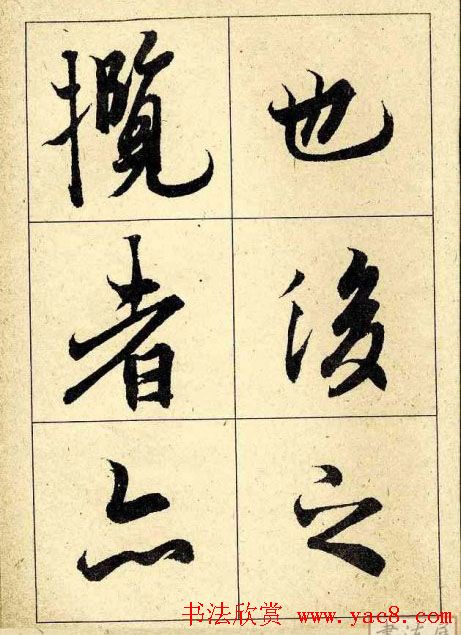 也後之
攬者亦
书法欣赏 www.yac8.com